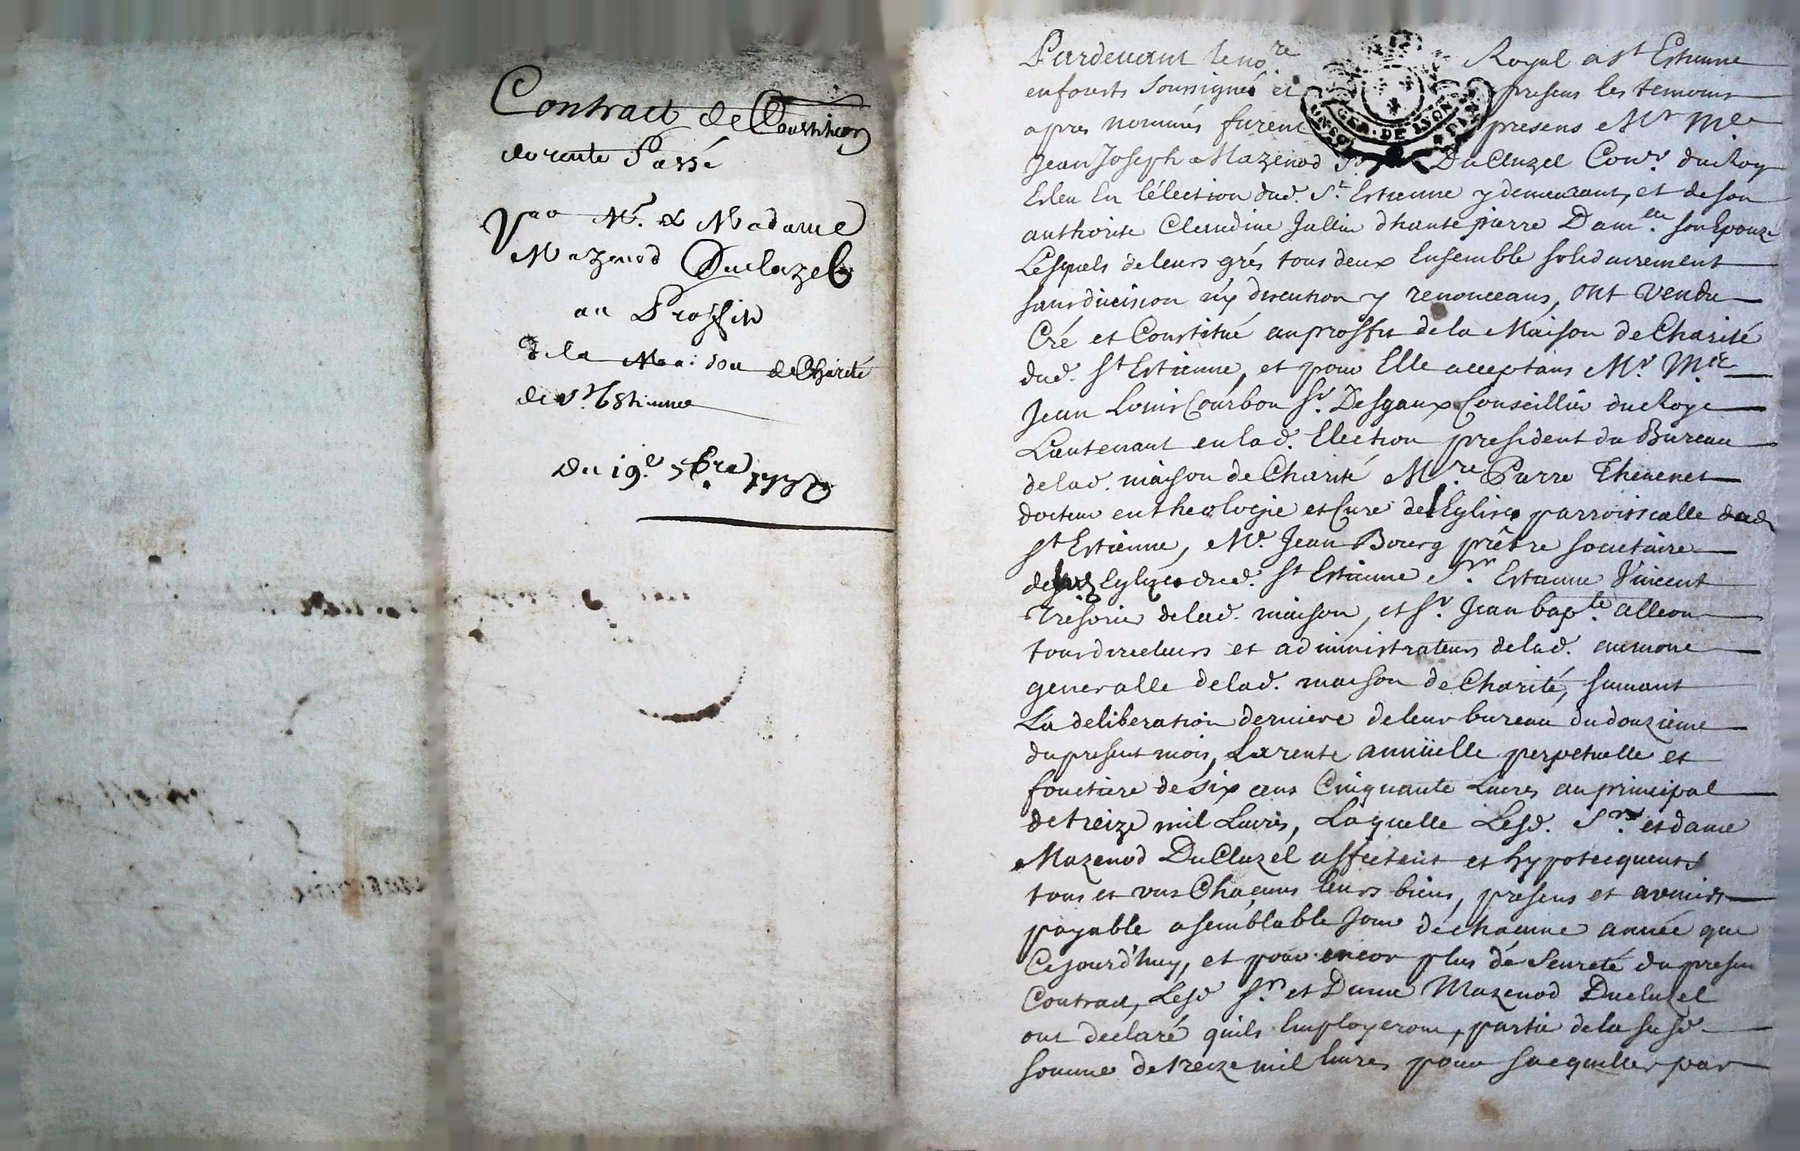 Contract de Constitution
de rente Passé
Par Mr. & Madame
Mazenod Ducluzel
au Proffit
de la Maison de Charité
de St. Estienne
Du 19e. 7bre
Pardevant le nore Royal a St Estienne
en forests soussigné et presens les temoins
apres nommés furent presens Mr Mre
Jean Joseph Mazenod Sr DuCluzel Conser. du Roy
Esleu En l'élection dud. St. Estienne y demeurant, et de son
authorité Claudine Jullien dhautepierre Damelle. son Epouze
Lesquels de leurs grés tous deux Ensemble solidairement
sans division ny discution y renonceans, ont vendu
Créé et Constitué au proffit de la Maison de Charité
dud. St Estienne, et pour Elle acceptans Mr. Mre
Jean Louis Courbon Sr. Desgaux Conseillier du Roye
Lieutenant en lad. Election president du Bureau
de lad. maison de Charité Mre. Pierre Thevenet
docteur en theologie et Curé de l'Eglise parroissialle dud
St Estienne, Me. Jean Bourg prêtre societaire
de Eglise dud. St Estienne Sr Estienne Vincent
Tresorier de lad. maison, et Sr. Jean bapte. alleon
tous directeurs et administrateurs de lad. aumone
generalle de lad. maison de Charité, suivant
La deliberation derniere de leur bureau du douzieme
du present mois, La rente annüelle perpetuelle et
fonciere de six cens Cinquante Livres au principal
de treize mil Livres, Laquelle Lesd. Srs. et dame
Mazenod DuCluzel affectent et hypotecquent
tous et uns Chacuns leurs biens, presens et avenirs
payable a semblable Jour de chacune année que
Cejourd'huy, et pour encor plus de seureté du present
Contract, Lesd Sr. et Dame Mazenod Ducluzel
ont declaré quils Employeront, partie de la susd.
somme de treize mil livres pour sacquitter par
GEN. DE LYON